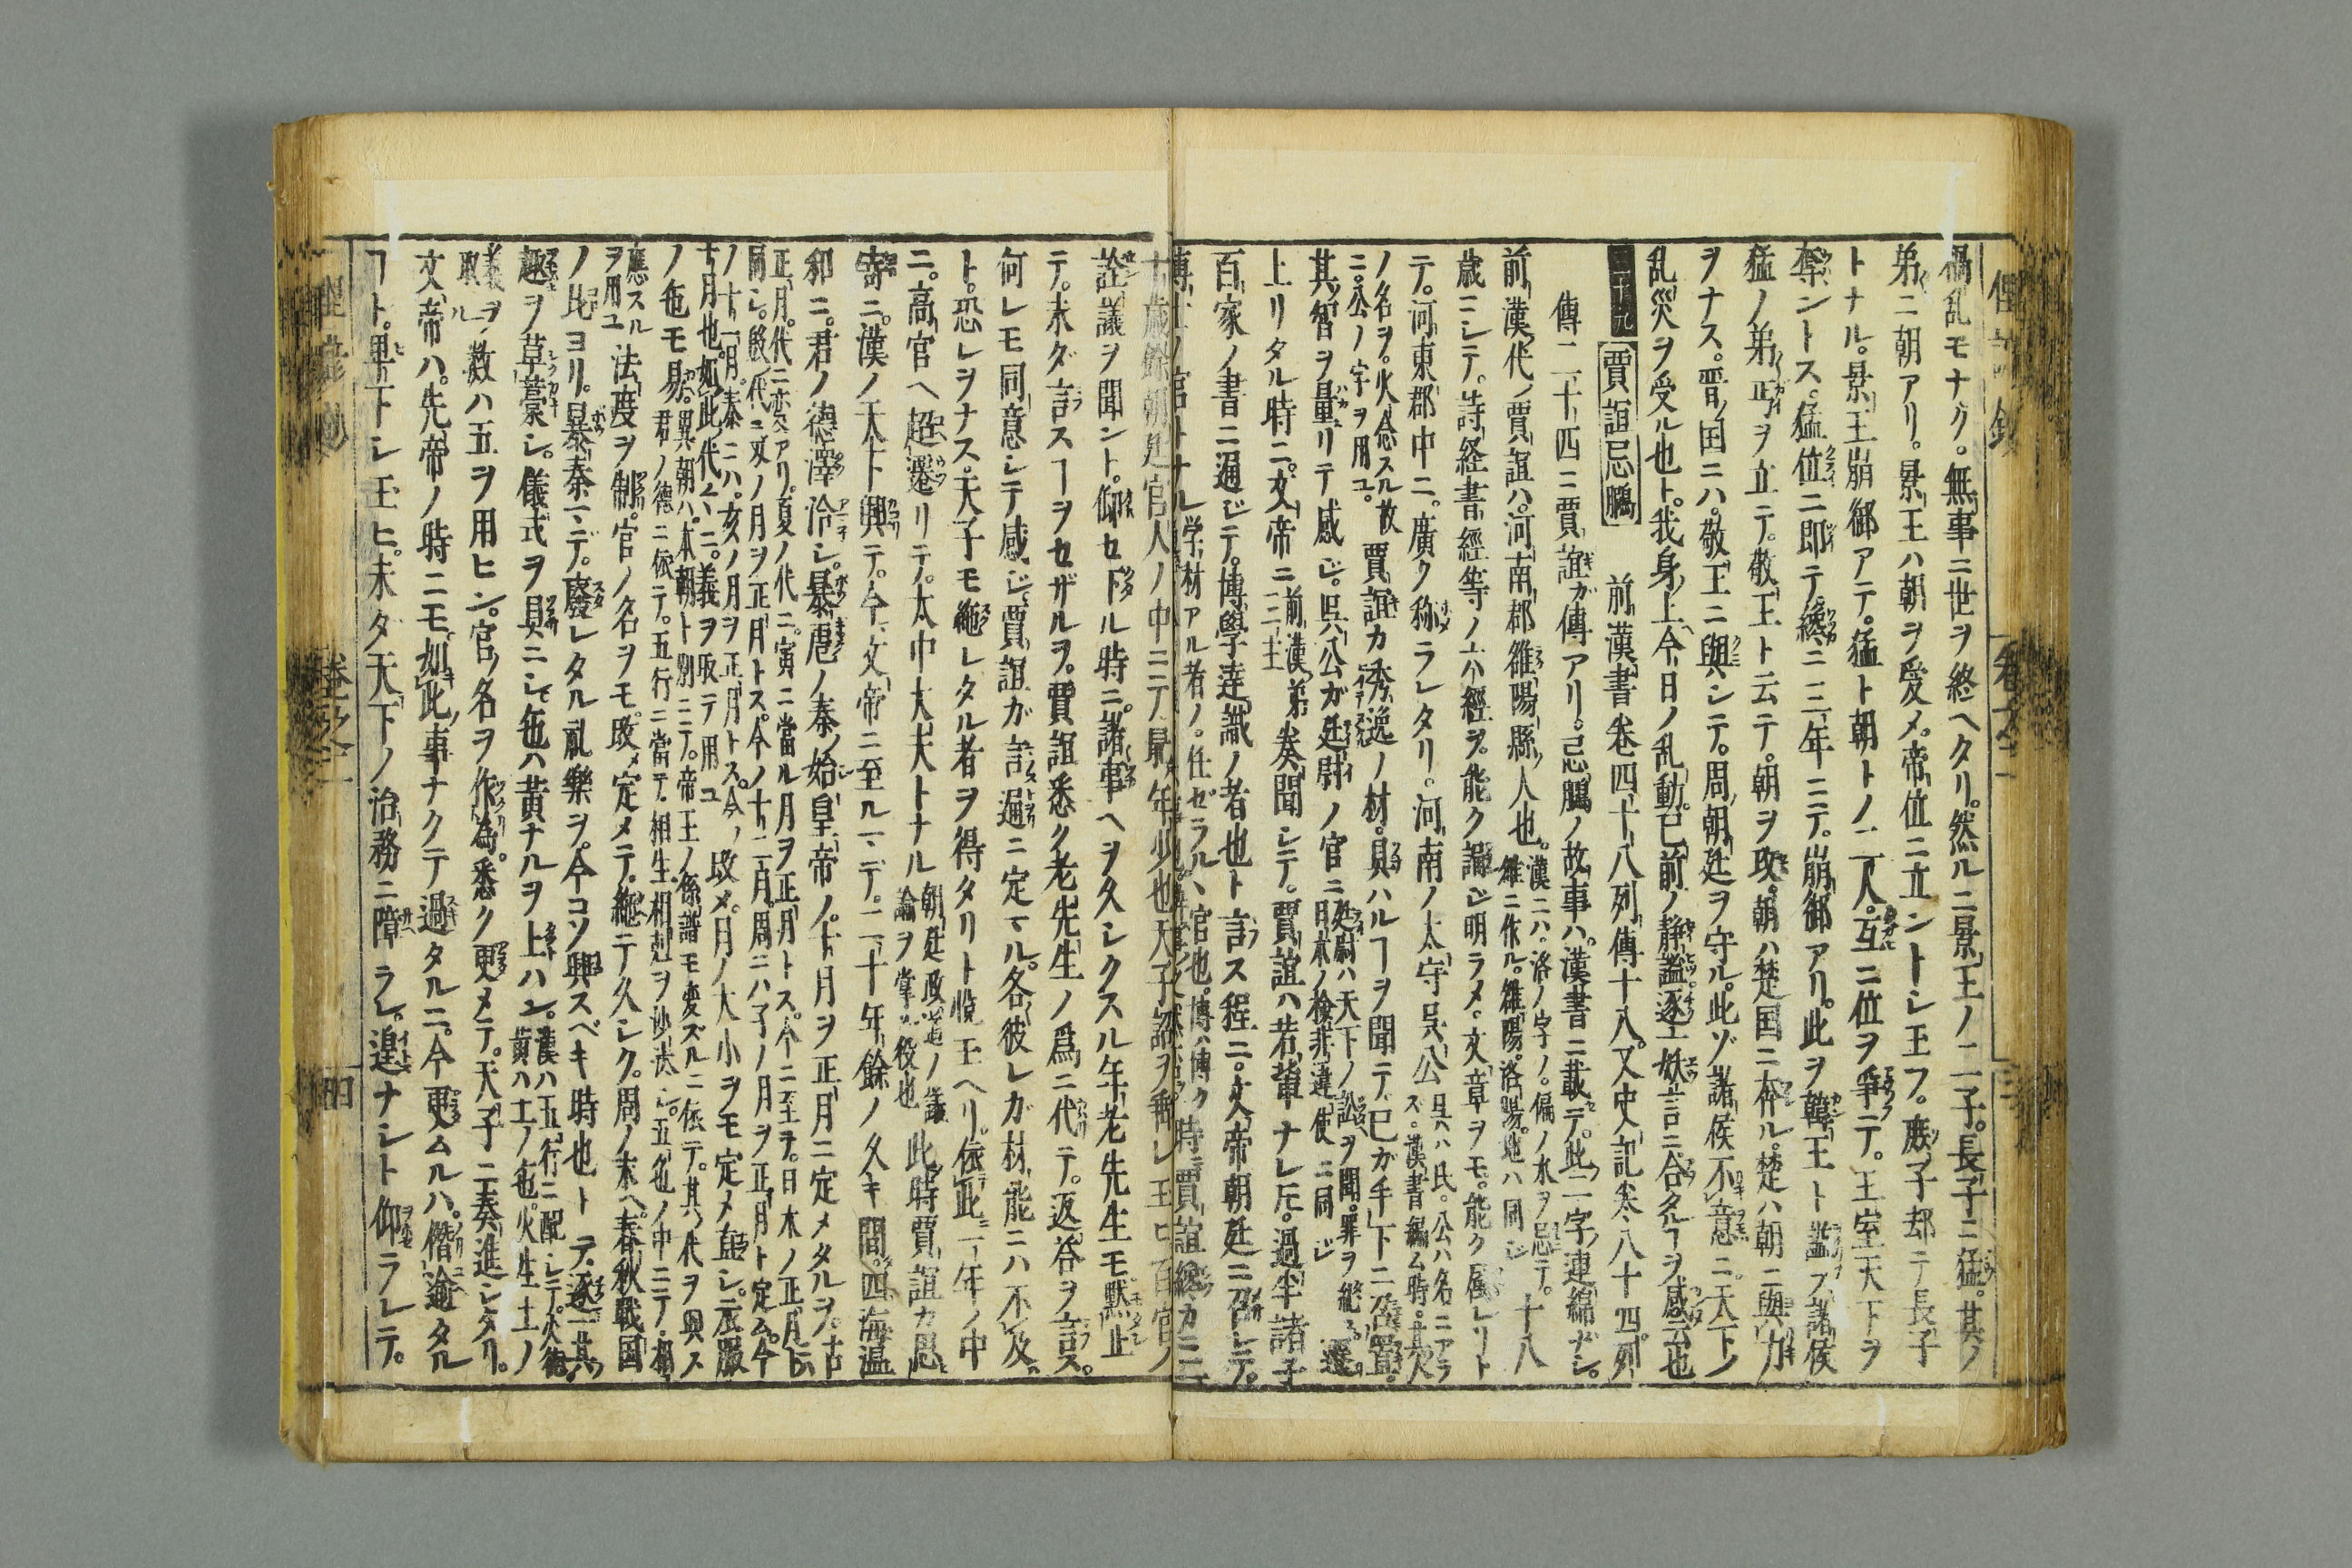 禍乱モナク。無事ニ世ヲ終ヘタリ。然ルニ景王ノ二子。長子ニ猛。其ノ
弟ニ朝アリ。景王ハ朝ヲ愛メ。帝位ニ立ントシ玉フ。庶子却テ長子
トナル。景王崩御アテ。猛ト朝トノ二人。互ニ位ヲ爭テ。王室天下ヲ
奪ントス。猛位ニ即テ。纔ニ二三年ニテ。崩御アリ。此ヲ王ト諡ス。諸侯
猛ノ弟正ヲ立テ。敬王ト云テ。朝ヲ攻。朝ハ楚国ニ奔ル。楚ハ朝ニ與力
ヲナス。晋国ニハ。敬王ニ與シテ。周朝廷ヲ守ル。此ゾ諸侯不意ニ。天下ノ
乱災ヲ受ル也ト。我身ノ上今日ノ乱動。已前ノ静謐逐士妖言ニ合タルヿヲ感云也
二十九 賈誼忌鵩 前漢書卷四十八列傳十八。又史記卷八十四列
傳二十四ニ賈誼ガ傳アリ。忌鵩ノ故事ハ。漢書ニ載テ。此二字連綿ナシ。
前漢代ノ賈誼ハ。河南郡雒陽縣人也。漢ニハ。洛ノ字ノ。偏ノ水ヲ忌テ。雒ニ作ル。雒陽。洛陽。地ハ同ジ 十八
歳ニシテ。詩経書經等ノ六經ヲ。能ク誦ジ明ラメ。文章ヲモ。能ク属レリト
テ。河東郡中ニ。廣ク称ラレタリ。河南ノ太守呉公呉ハ氏。公ハ名ニアラズ。漢書編ム時。其人
ノ名ヲ。火念スル故ニ。公ノ字ヲ用ユ。 賈誼カ秀逸ノ材。具ハルヿヲ聞テ。已ガ手下ニ召置。
其智ヲ量リテ感ジ。呉公ガ廷尉ノ官ニ廷尉ハ天下ノ訟ヲ聞。罪ヲ糺ス。日本ノ検非違使ニ同ジ 遷
上リタル時ニ。文帝ニ前漢第三主 奏聞シテ。賈誼ハ若輩ナレ𪜈。過半諸子
百家ノ書ニ通ジテ。博學達識ノ者也ト言ス程ニ。文帝朝廷ニ召シテ。
博士ノ官トナル学材アル者ノ。仕ゼラルヽ官也。博ハ博ク 時ニ賈誼纔カ二
十歳餘朝廷官人ノ中ニテ最年少也天子詔ヲ布レ玉ヒ百官ノ
詮議ヲ聞ント。仰セ下ル時ニ。諸事ヘヲ久シクスル年老先生モ默止
テ。未ダ言スヿヲセザルヲ。賈誼悉ク老先生ノ爲ニ代テ。返答ヲ言ス。
何レモ同意シテ感ジ。賈誼ガ言通ニ定マル。各彼レガ材能ニハ不及
ト。恐レヲナス。天子モ絶レタル者ヲ得タリト悦玉ヘリ。依此一年ノ中
ニ。高官ヘ超遷リテ。太中大夫トナル朝廷政道ノ議論ヲ掌ル役也 此時賈誼カ思
寄ニ。漢ノ天下興テ。今文帝ニ至ルマデ。二十年餘ノ久キ間。四海温
和ニ。君ノ德澤洽シ。暴虐ノ秦ノ始皇帝ノ。十月ヲ正月ニ定メタルヲ。古
正月。代ニ変アリ。夏ノ代ニ。寅ニ當ル月ヲ正月トス。今ニ至ヲ。日本ノ正月ト
同シ。殷代ニ丑ノ月ヲ正月トス。今ノ十二月。周ニハ子ノ月ヲ正月ト定ム。今
ノ十一月。秦ニハ。亥ノ月ヲ正月トス。今ノ
十月也。如此代々ニ。義ヲ取テ用ユ 改メ。月ノ大小ヲモ定メ直シ。衣服
ノ色モ易。異朝ハ。本朝ト別ニテ。帝王ノ系譜モ変ズルニ依テ。其代ヲ興ス
君ノ德ニ依テ。五行ニ當テ。相生相剋ヲ沙汰シ。五色ノ中ニテ。相
應スルヲ用ユ 法度ヲ制。官ノ名ヲモ。改メ定メテ。絶テ久シク。周ノ末ヘ。春秋戦国
ノ此ヨリ。暴秦マデ。廢レタル礼樂ヲ。今コソ興スベキ時也トテ。逐一其
趣ヲ草藁シ。儀式ヲ具ニシ。色ハ黄ナルヲ上ハシ。漢ハ五行ニ配シテ。火德黄ハ土ノ色。火生土ノ
義ヲ取ル 数ハ五ヲ用ヒン。官ノ名ヲ作為。悉ク更メテ。天子ニ奏進シタリ。
文帝ハ。先帝ノ時ニモ。如此事ナクテ過タルニ。今更ムルハ。僭逾タル
ヿト。畢下シ玉ヒ。未タ天下ノ治務ニ障ラレ。遑ナシト仰ラレテ。
卷之二
四